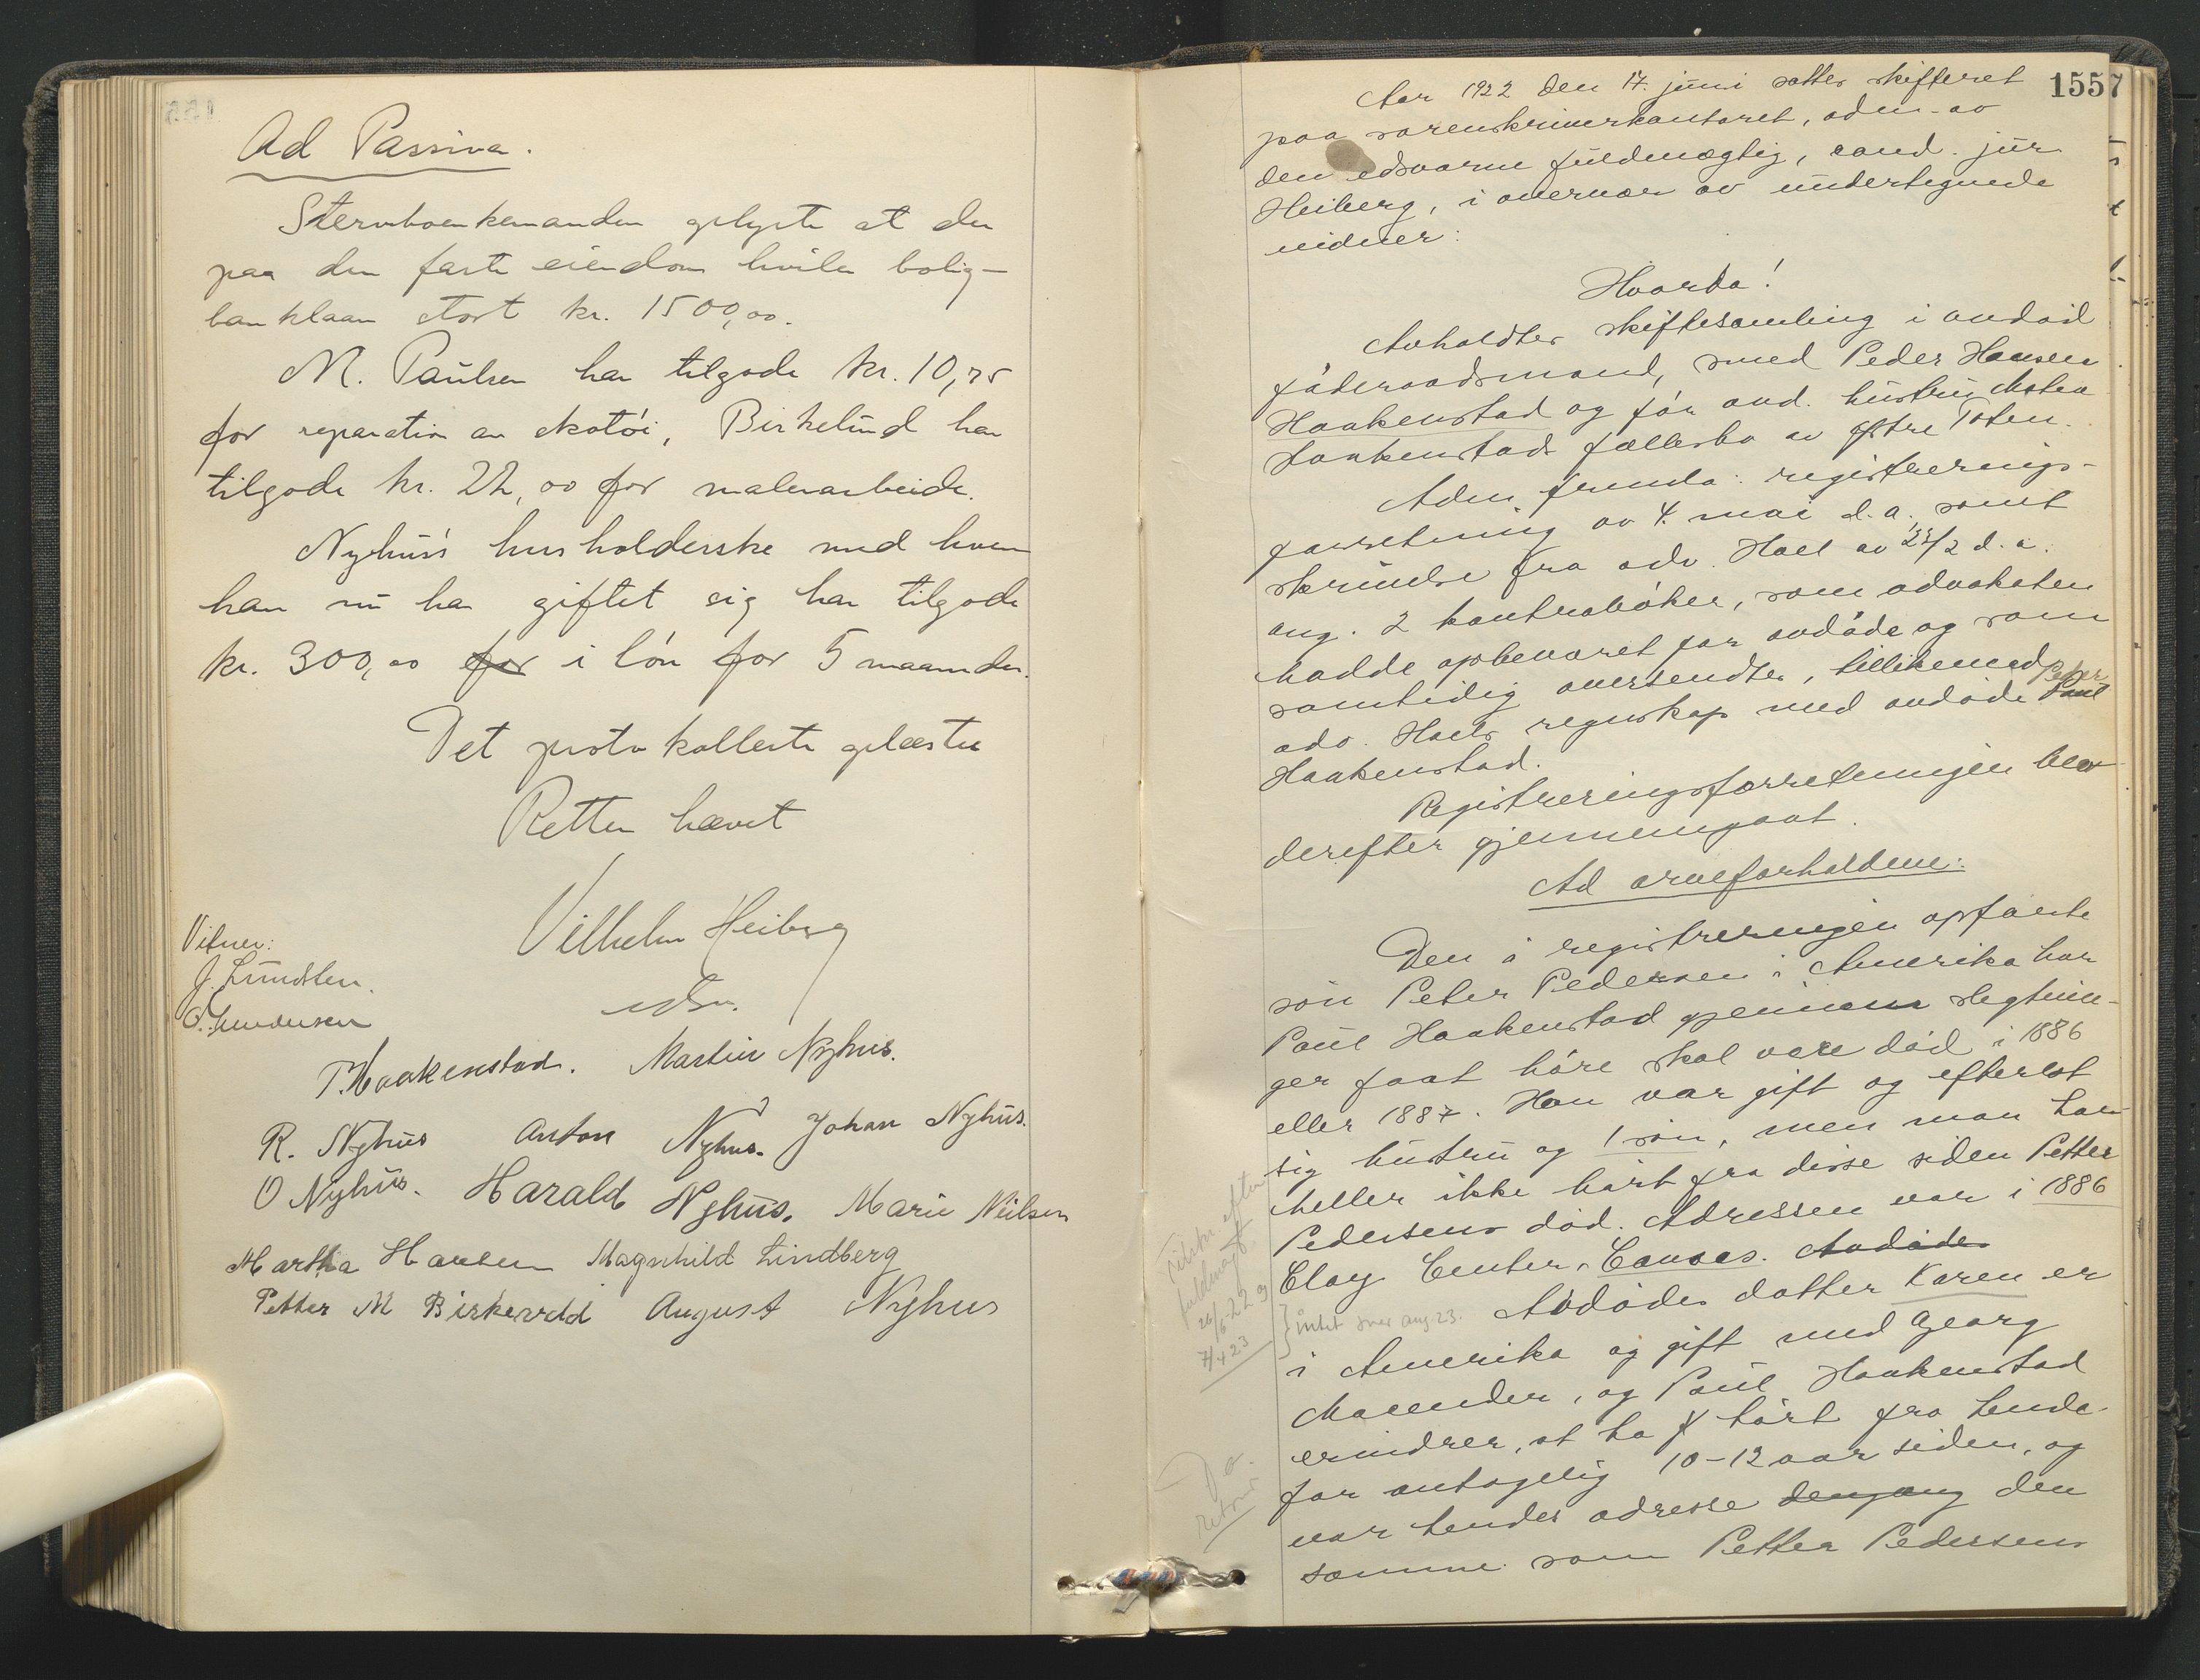 Ad Passiva.
Stervboenkemanden oplyste at der
paa den faste eiendom hviler bolig-
banklaan stort kr. 1500,00.
M. Paulsen har tilgode kr. 10,75
for reparation av skotöi, Birkelund har
tilgode kr. 22,00 for malerarbeide.
Nyhus's husholderske med hvem
han nu har giftet sig har tilgode
kr. 300,00 for i lön for 5 maaneder.
Det protokollerte oplæstes
Retten hævet
Vilhelm Heiberg
edsv.
Vitner:
J. Lundsten.
O. Gundersen
P. Haakenstad. Martin Nyhus.
R. Nyhus Anton Nyhus. Johan Nyhus.
O Nyhus. Harald Nyhus. Marie Nilsen
Martha Hansen Magnhild Lindberg
Petter M Birkevold August Nyhus
1557
Aar 1922 den 17. juni sattes skifteret
paa sorenskriverkontoret, adm. av
den edsvorne fuldmægtig, cand. jur.
Heiberg, i overvær av undertegnede
vidner:
Hvorda!
Avholdtes skiftesamling i avdöd
föderaadsmand, smed Peder Hansen
Haakenstad og för avd. hustru Mathea
Haakenstads fællesbo av Östre Toten.
Adm. fremla: registrerings-
forretning av 4. mai d.a. samt
skrivelse fra adv. Hoel av 23/2 d.a.
ang. 2 kontraböker, som advokaten
hadde opbevaret for avdöde og som
samtidig oversendtes, tillikemed
adv. Hoels regnskap med avdöde Paul Peder
Haakenstad.
Registreringsforretningen blev
derefter gjennemgaat.
Ad arveforholdene:
Den i registreringen opförte
sön Peter Pedersen i Amerika har
Paul Haakenstad gjennem slegtnin-
ger faat höre skal være död i 1886
eller 1887. Han var gift og efterlot
sig hustru og 1 sön, men man har
heller ikke hört fra disse siden Petter
Pedersens död. Adressen var i 1886
Clay Center, Cansas. Avdödes
Avdödes datter Karen er
i Amerika og gift med Georg
Macender, og Paul Haakenstad
erindrer, at ha hört fra hende
for antagelig 10-12 aar siden, og
var hendes adresse dengang den
samme som Petter Pedersens
Tilskr. efter
fuldmagt
26/6-22 og
7/4 23
} intet svar aug. 23.
Do.
retour